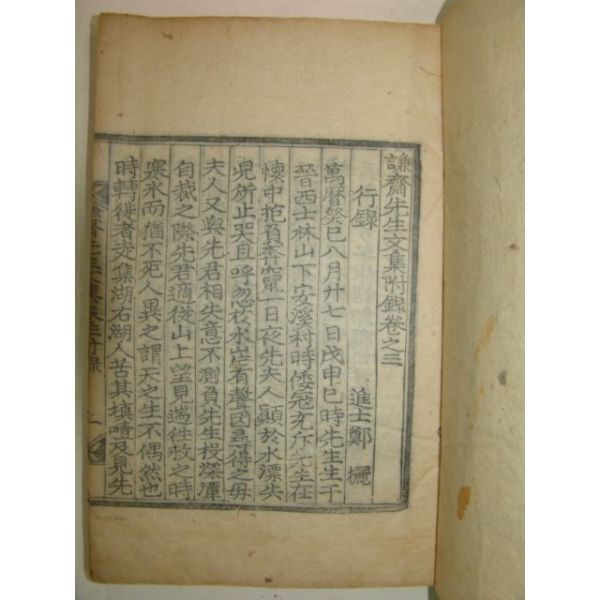 謙齋先生文集附錄卷之三
行錄
進士鄭欐
萬曆癸巳八月廿七日戊申巳時先生生于
晉西士林山下安溪村時倭冦充斥先生在
懷中抱負奔竄一日夜先夫人顚於水漂失
兒所止哭且呼忽夜水岸有聲因尋得之毋
夫人又與先君相失意不測負先生投深潭
自裁之際先君適從山上望見湍往救之時
寒氷而猶不死人異之謂天之生不偶然也
時轉徙者走集湖右湖人苦其塡噎及見先
謙齋先生文集卷之三附錄
一